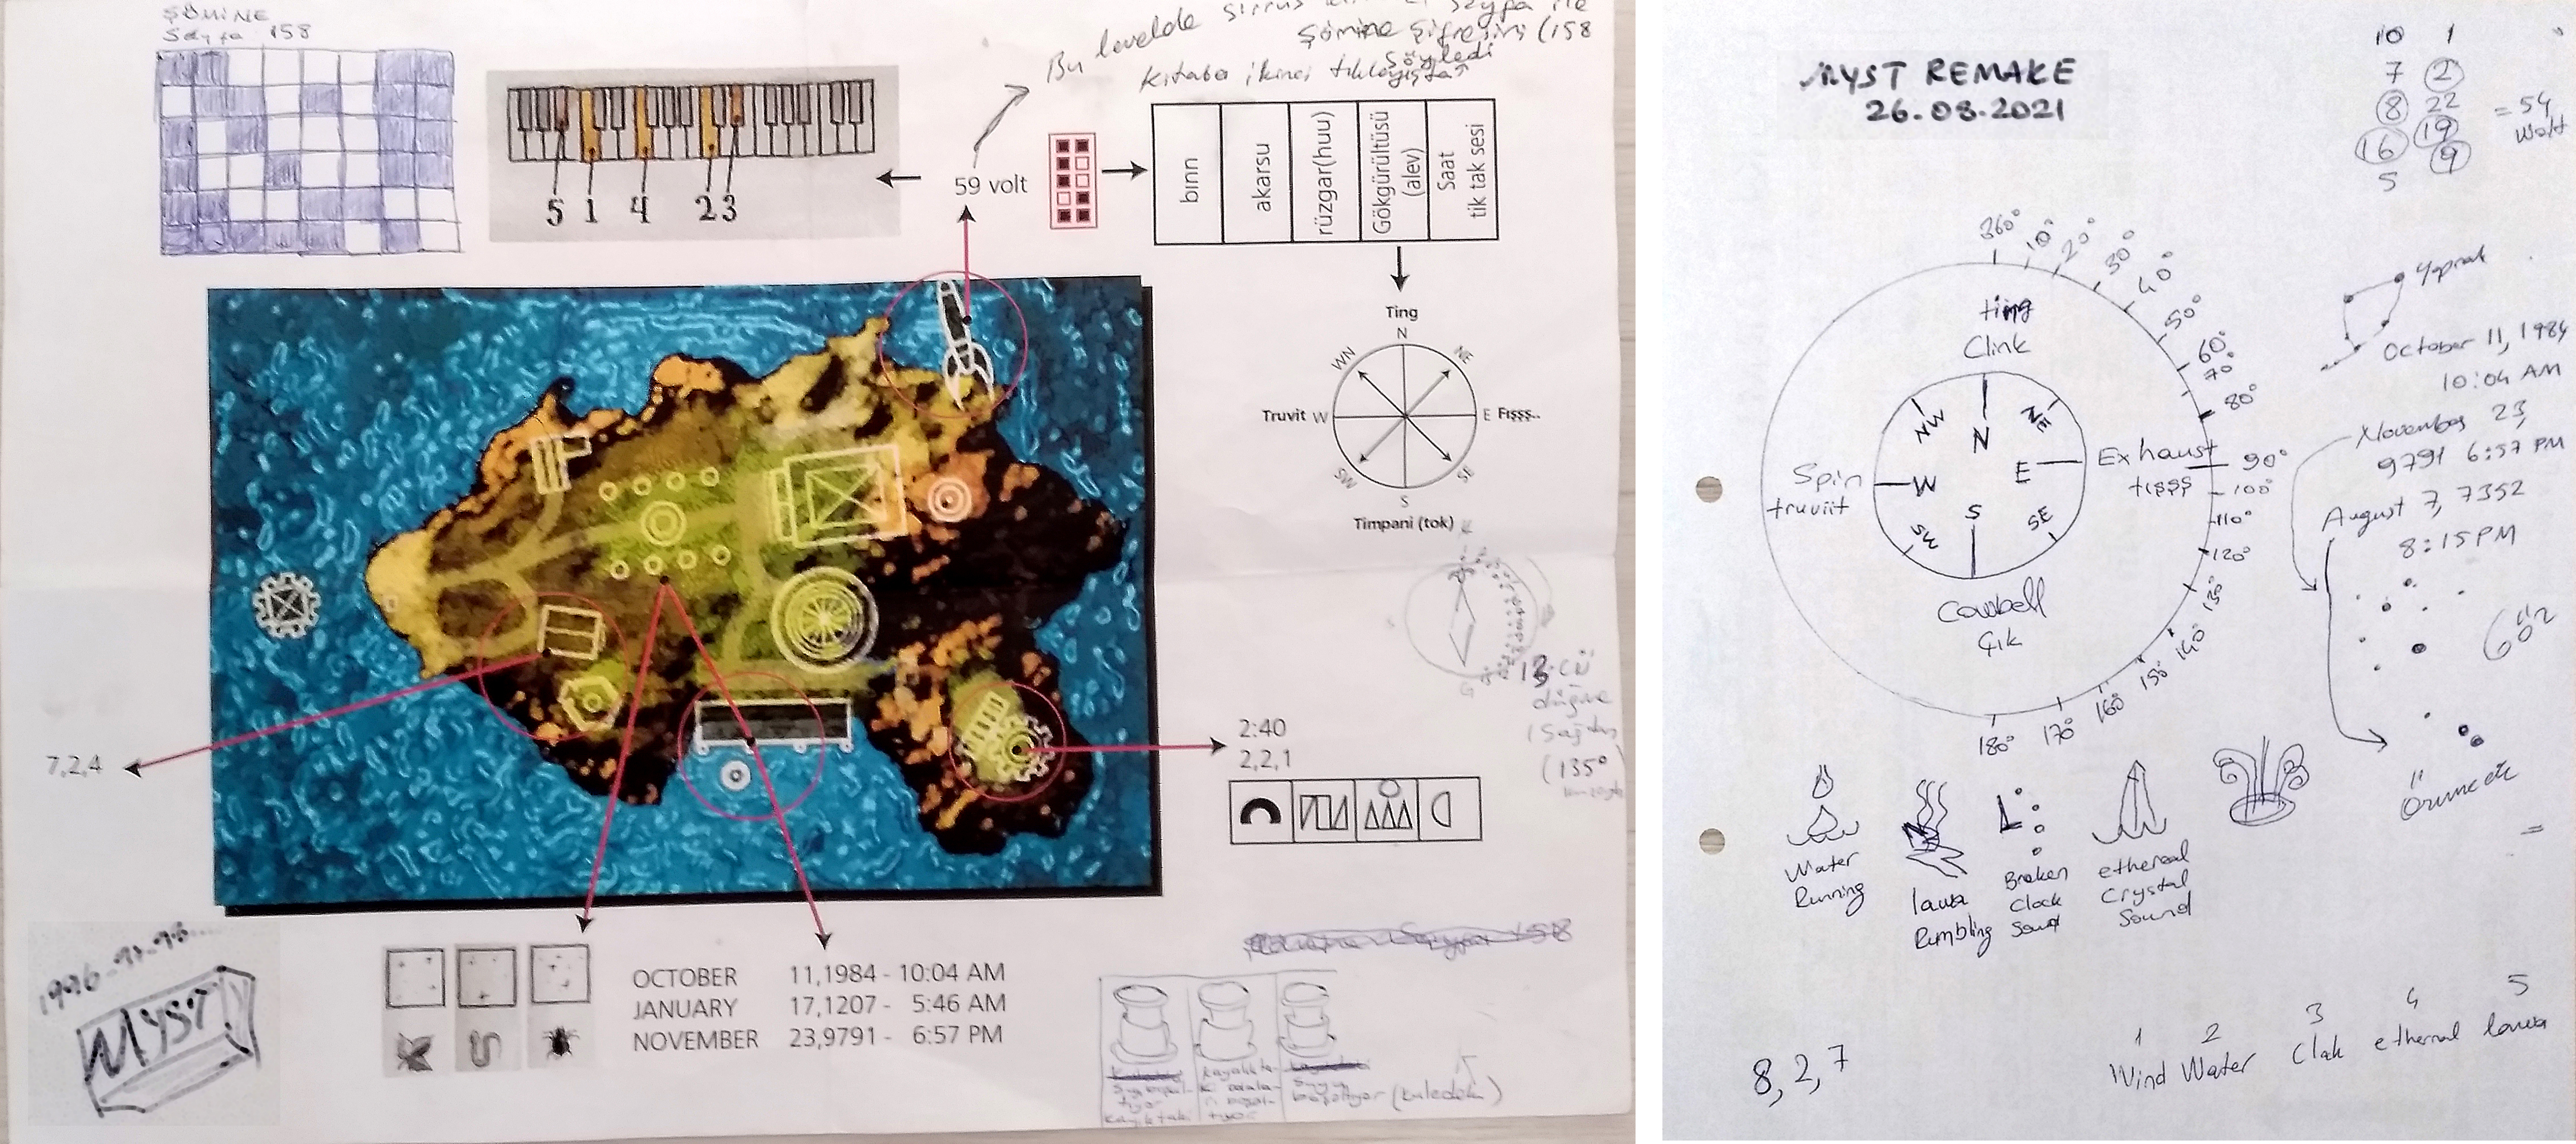 ŞÖMİNE
Sayfa 158
Bu levelde sirrus
Sayfa ile
Şömine Şifresini (158
Söyledi
kitaba ikinci tıklayışta
5 1 4 2 3
59 volt
bınn
akarsu
rüzgar(huu)
Gökgürültüsü
(alev)
Saat
tik tak sesi
Ting
N
WN
NE
Truvit W
E Fışşş..
SW
SE
S
Timpani (tok)
G
düğme
(Sağdan
(135°
7,2,4
2:40
2,2,1
1996
MYST
OCTOBER 11,1984 - 10:04 AM
JANUARY 17,1207 - 5:46 AM
NOVEMBER 23,9791 - 6:57 PM
Sayfa 158
(kuledeki)
MYST REMAKE
26.08.2021
10 1
7 2
8 22
= 54
16 19
9
5
Yaprak
October 11, 1984
10:04 AM
November 23,
9791 6:57 PM
August 7, 7352
8:15 PM
360°
10°
20°
30°
40°
50°
60°
70°
80°
90°
100°
110°
120°
130°
140°
150°
160°
170°
180°
ting
Clink
NW
N
NE
Spin
truviit
W
E
Exhaust
tışşş
SW
S
SE
Cowbell
Çık
Örümcek
Water
Running
lawa
Rumbling
Broken
Clock
Sound
ethereal
Crystal
Sound
1 2 3 4 5
Wind Water Clak ethernal lawa
8, 2, 7